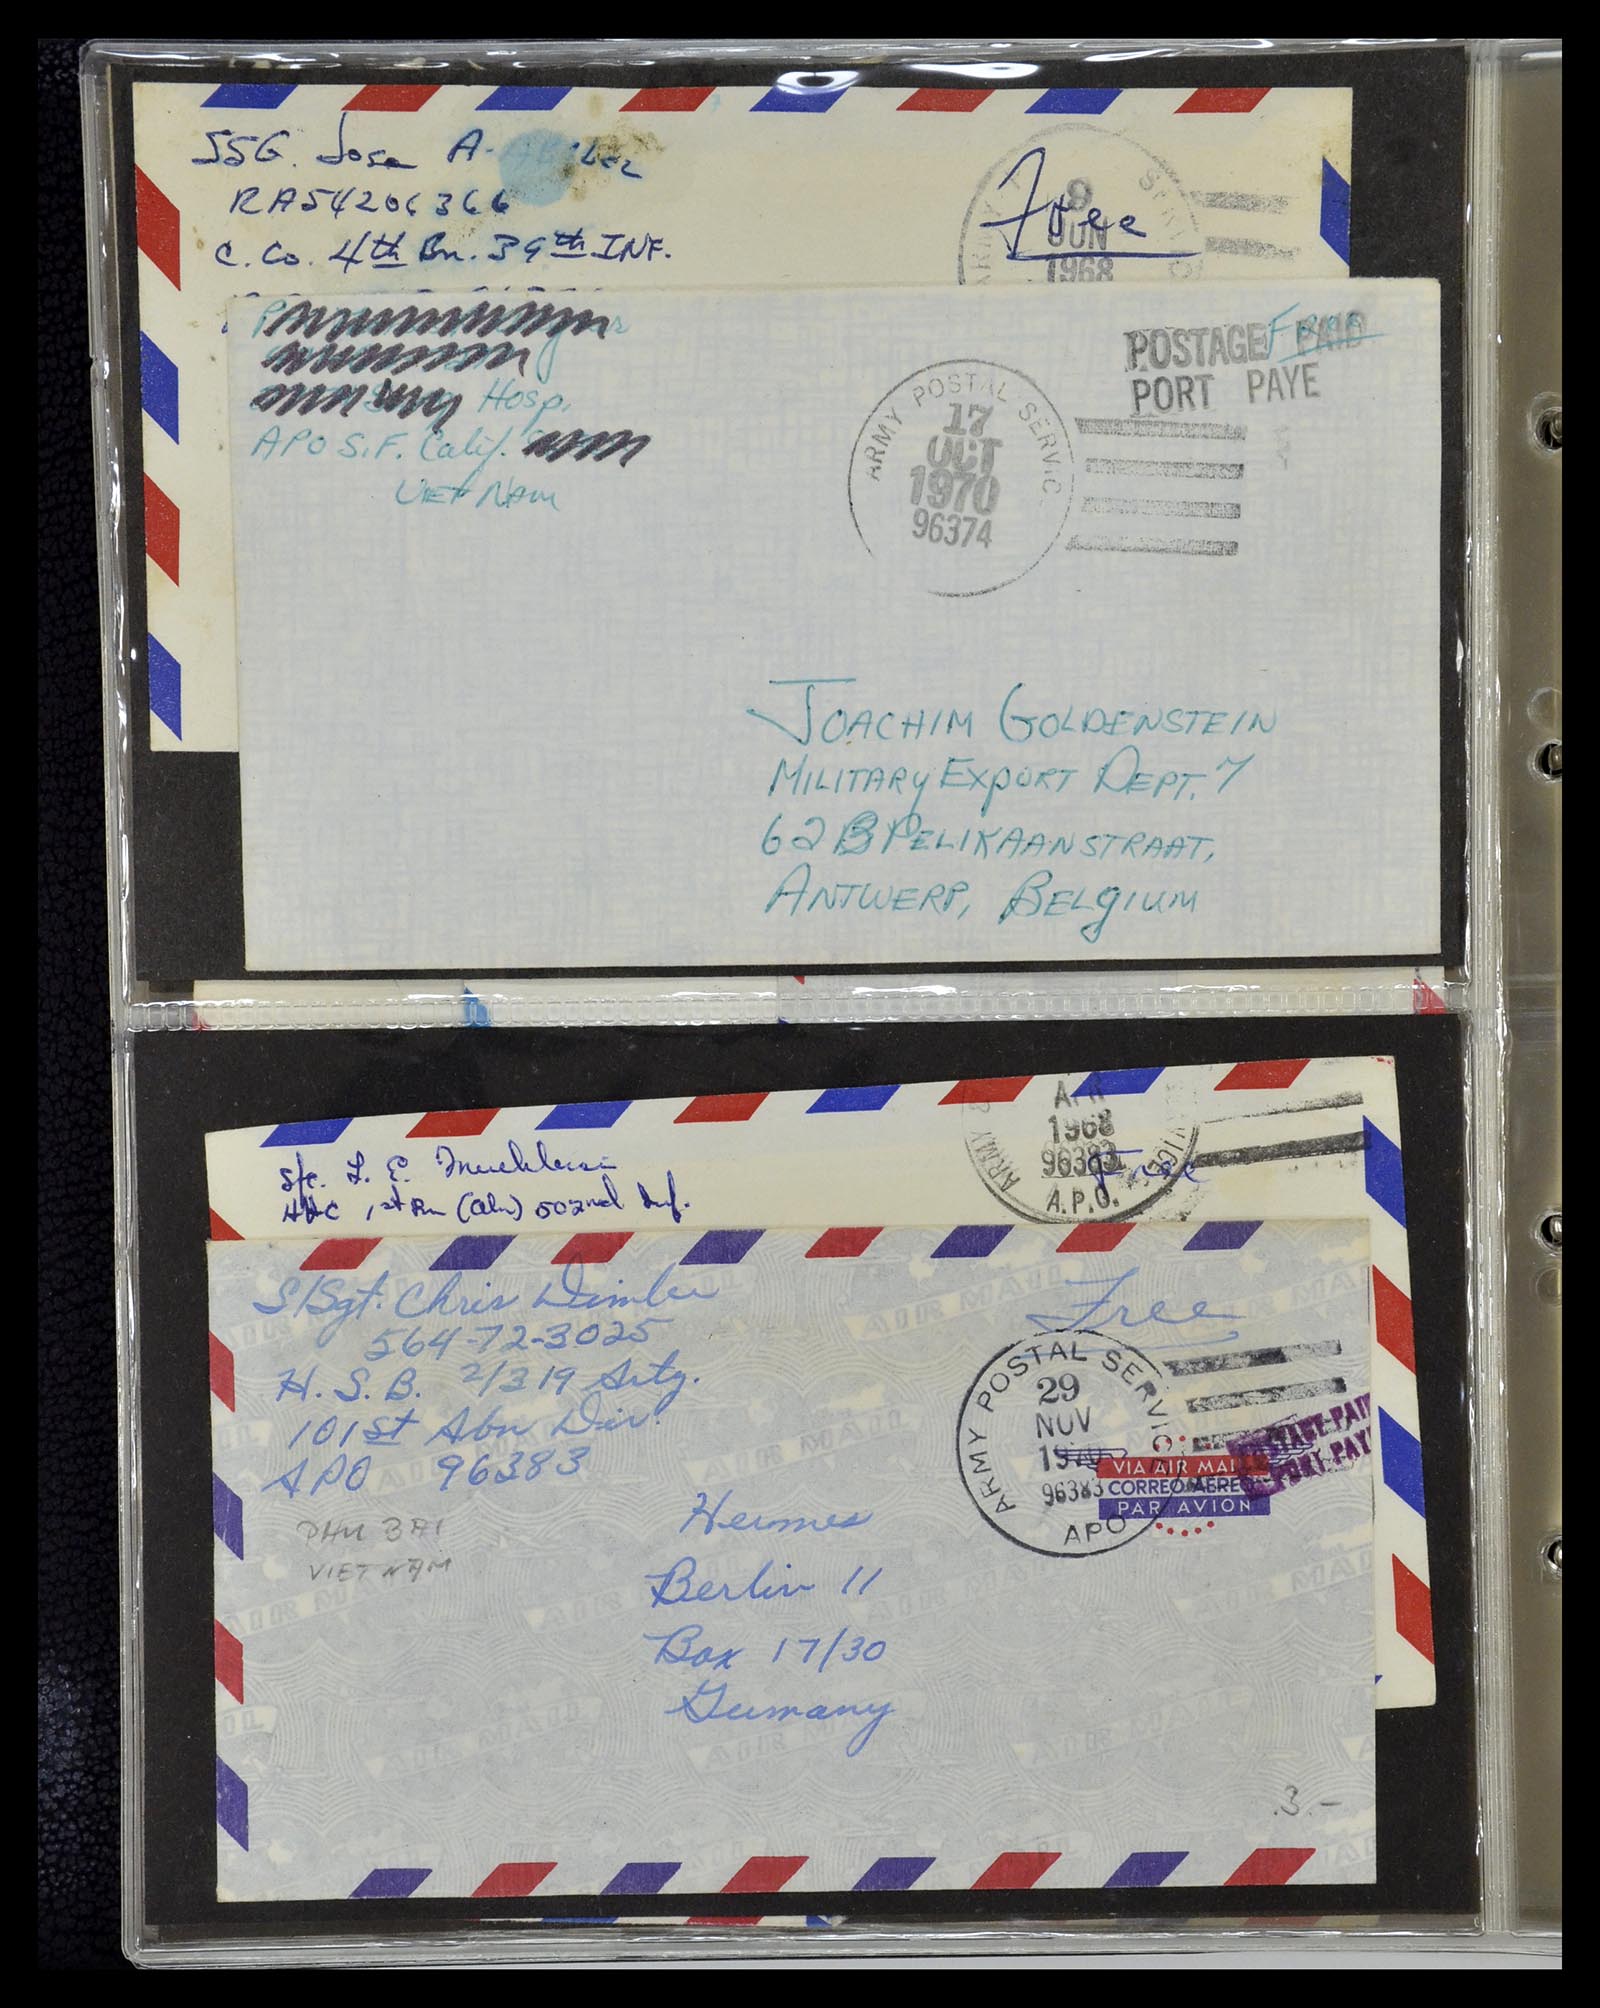 SSG. Jose A.
RA54206366
C. Co. 4th Bn. 39th INF.
Free
9
JUN
1968
Hosp.
APO S.F. Calif.
VIET NAM
ARMY POSTAL SERVIC
17
OCT
1970
96374
Free
POSTAGE PAID
PORT PAYE
JOACHIM GOLDENSTEIN
MILITARY EXPORT DEPT. 7
62 B PELIKAANSTRAAT,
ANTWERP, BELGIUM
Sfc. L. E.
HHC 1st Bn (Abn) 502nd Inf.
APR
1968
96383
A.P.O.
Free
S/Sgt. Chris
564-72-3025
H. S. B. 2/319 Arty.
101st Abn Div.
APO 96383
PHU BAI
VIET NAM
Free
ARMY POSTAL SERVICE
29
NOV
1970
96383
APO
VIA AIR MAIL
CORREO AEREO
PAR AVION
POSTAGE PAID
PORT PAYE
Hermes
Berlin 11
Box 17/30
Germany
3.-